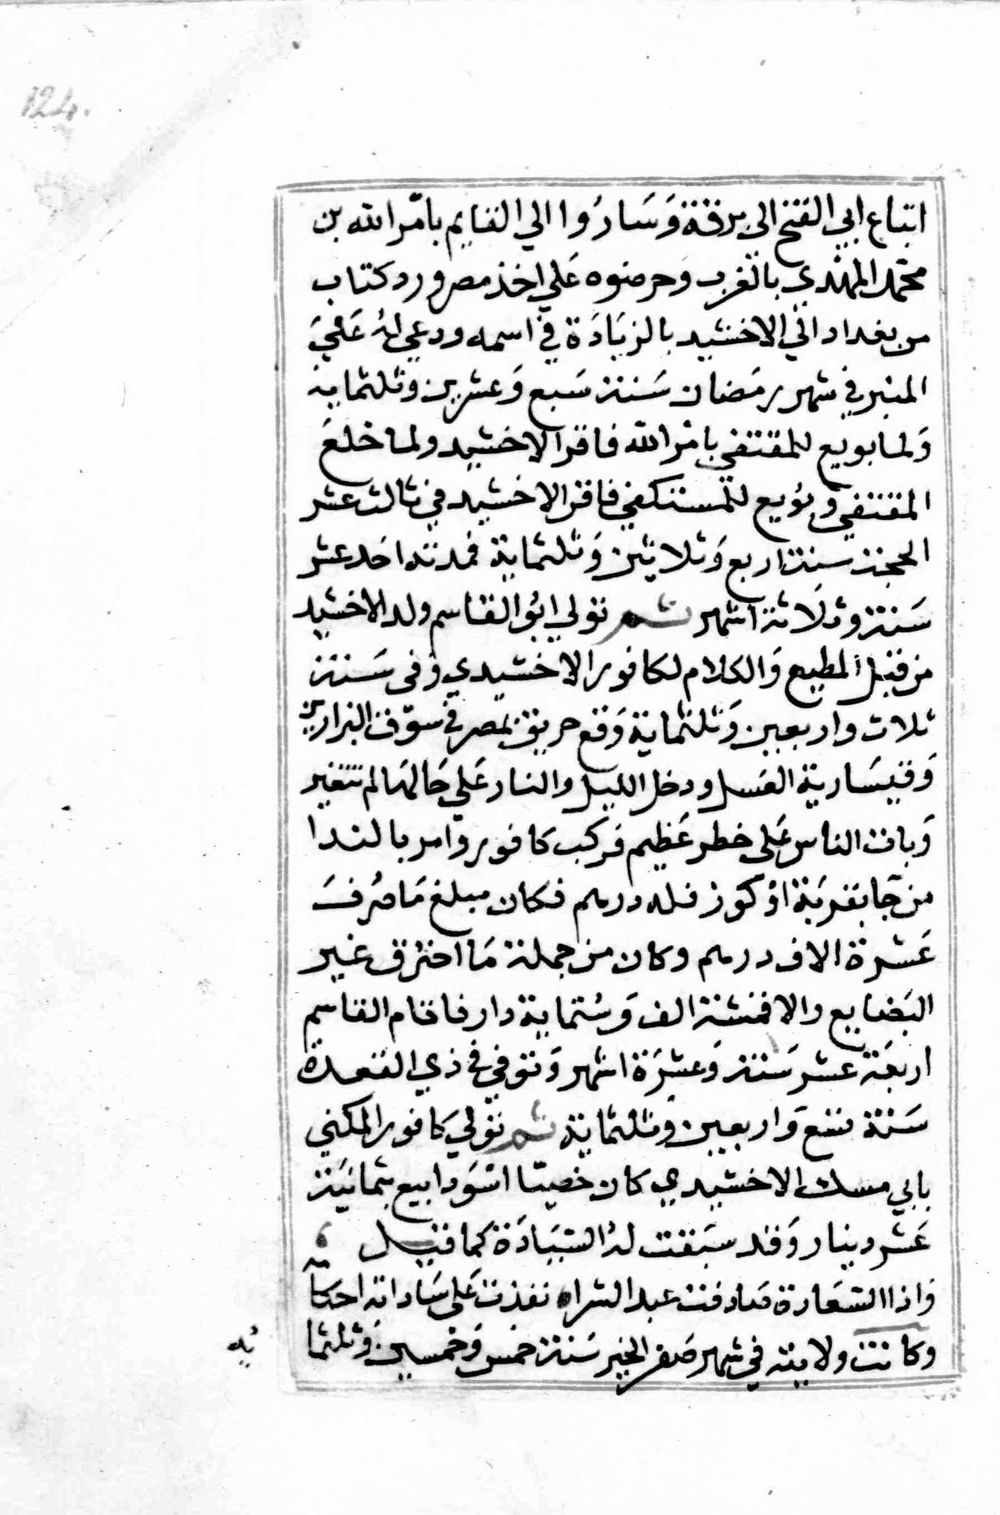 124.
اتباع ابي الفتح الى برقة وَسَارُوا الي القايم بامْر الله بن
محمّد المهْدي بالغَرب وحرضوه عَلي اخذ مصر ورد كتاب
من بغداد الي الاخشيد بالزيَادَة في اسمه ودعي لهُ عَليَ
المنبر في شهر رمَضان سَنة سَبع وَعشرين وثلثماية
وَلما بويع للمقتفي بامْر الله فاقر الاخشيد ولما خلعَ
المقتفي وبُويع للمستكفي فاقر الاخشيد في ثالث عشر
الحجة سنة اربع وَثلاثين وَثلثماية فمدته احَد عشر
سَنة وثلَاثة اشهر ثم تولي ابُو القاسم ولد الاخشيد
من قبل المطيع وَالكلام لكافور الاخشيدي وَفى سَنة
ثلاث واربعين وَثلثماية وَقع حريق بمصر في سوَق البزارين
وَقيسَارية العَسل ودخل الليل والنار عَلي حَالهَا لم تتغير
وَبات الناس عَلى خطر عَظيم فركب كافور وامر بالندا
من جَا بقربَة اوْ كوز فله درهم فكان مبلغ مَا صُرفَ
عَشرة الاف درهم وكان من جملة مَا احترق غير
البَضايع والاقمشة الف وَسُتماية دار فاقام القاسم
اربعَة عشر سَنة وَعشرَة اشهر وَتوفي في ذي القعدة
سَنة تسع وَاربعين وثلثماية ثم تولي كافور المكني
بابي مسك الاخشيدي كان خصيّا اسْوَد ابيع بثمانيَة
عَشر دينار وَقد سَبقت لهُ السّيَادَة كما قيل
وَاذا السّعَادة صَادفت عبد الشراه نفذت عَلى سَاداته احكامه
وكانت ولايته في شهر صَفر الخير سَنة خمس وَخمسين وَثلثما
يُه